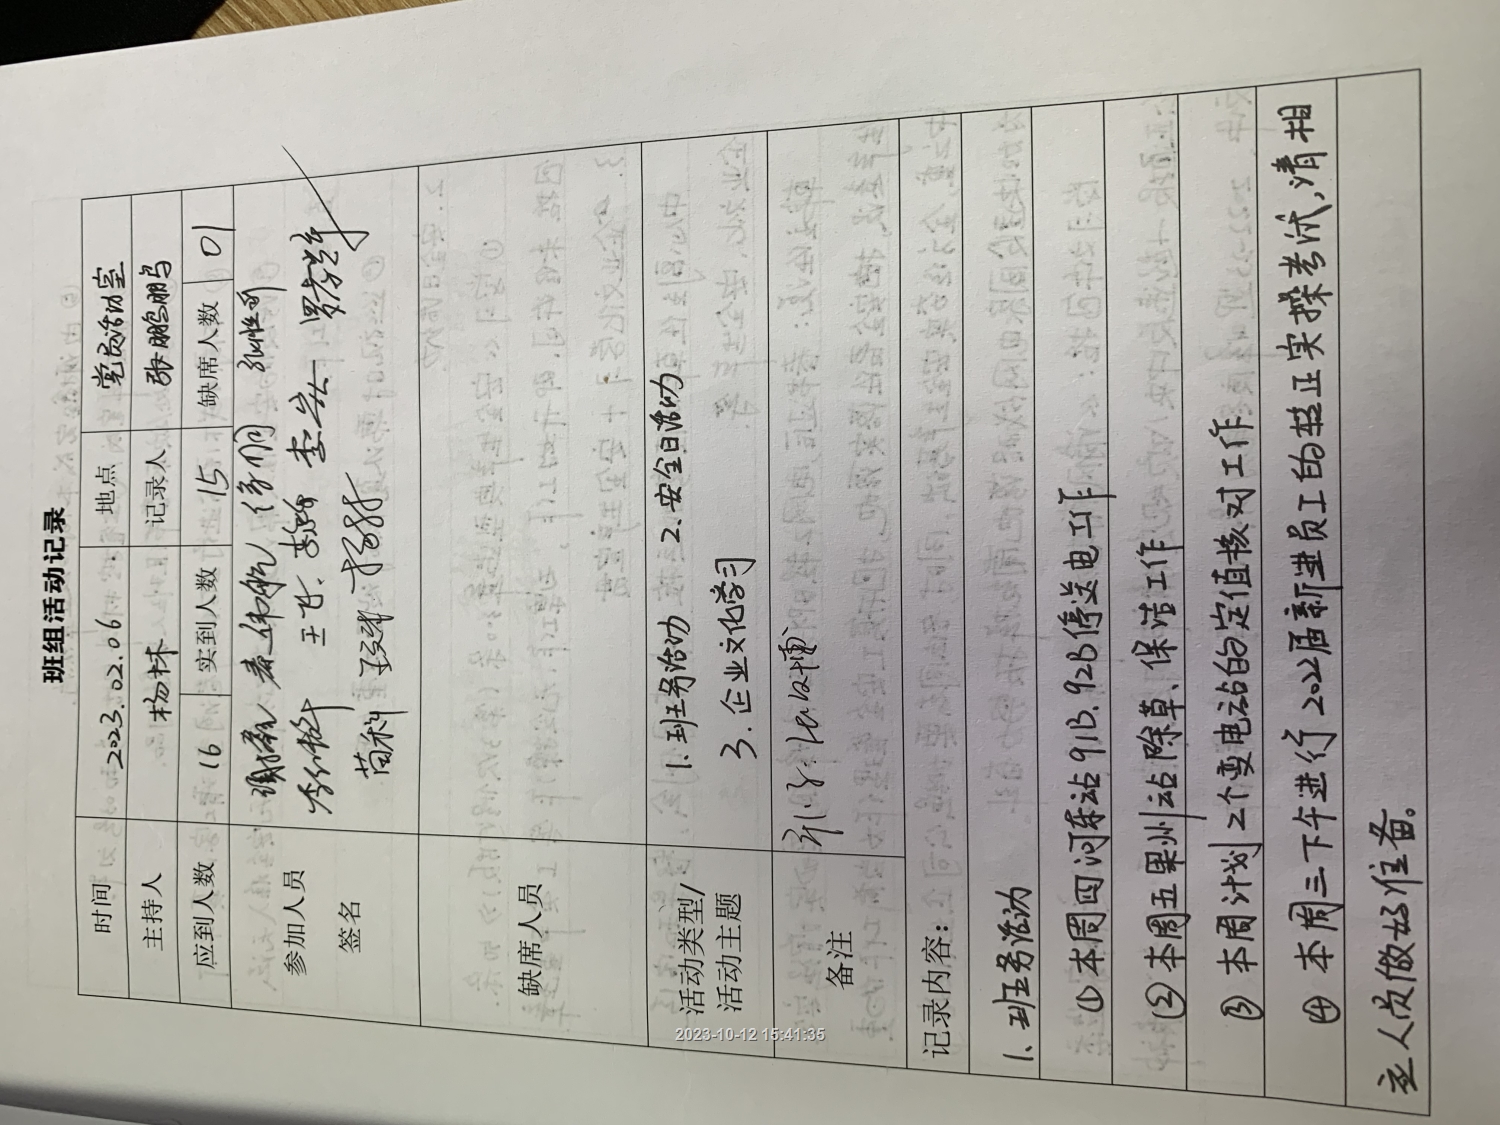 班组活动记录
时间 2023.02.06 地点 党员活动室
主持人 杨林 记录人 张鹏鹏
应到人数 16 实到人数 15 缺席人数 01
参加人员
签名
王飞
苗科 杨林
缺席人员
活动类型/
活动主题
1.班务活动 2.安全日活动
3.企业文化学习
备注
记录内容:
1、班务活动
①本周四河东站91B、92B停送电工作
②本周五果州站除草、保洁工作
③本周计划2个变电站的定值核对工作
④本周三下午进行2022届新进员工的转正实操考试,请相
关人员做好准备。
2023-10-12 15:41:35